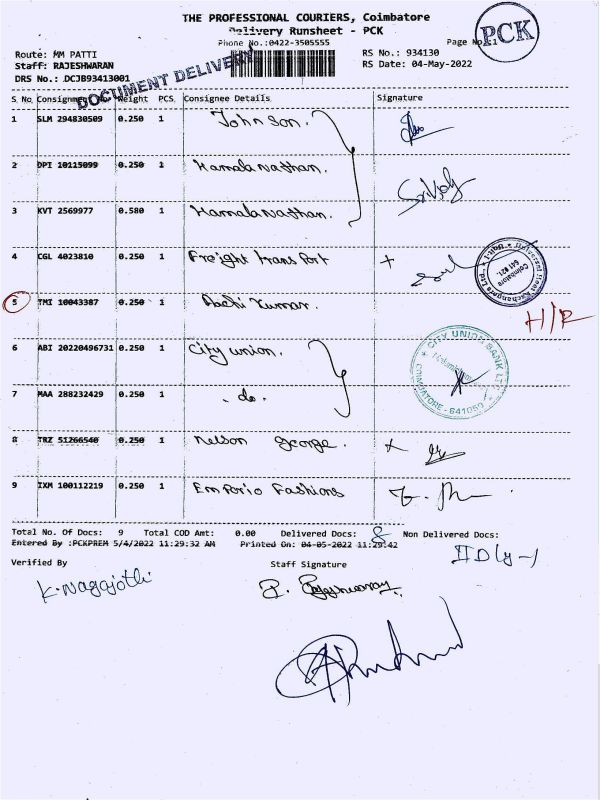 THE PROFESSIONAL COURIERS, Coimbatore
Delivery Runsheet - PCK
Phone No.:0422-3505555
Page No
PCK
Route: MM PATTI
RS No.: 934130
Staff: RAJESHWARAN
RS Date: 04-May-2022
DRS No.: DCJB93413001
DOCUMENT DELIVERY
S No Consignment Weight PCS Consignee Details Signature
1 SLM 294830509 0.250 1 Johnson.
2 DPI 10115099 0.250 1 Kamalanathan.
3 KVT 2569977 0.580 1 Kamalanathan.
4 CGL 4023810 0.250 1 Freight transport
Coimbatore
5 TMI 10043387 0.250 1 Kumar. H/R
6 ABI 20220496731 0.250 1 City union.
CITY UNION BANK LTD
COIMBATORE - 641050
7 MAA 288232429 0.250 1 - do -
8 TRZ 51266540 0.250 1 Nelson george.
9 IXM 100112219 0.250 1 Emporio Fashions
Total No. Of Docs: 9 Total COD Amt: 0.00 Delivered Docs: 8 Non Delivered Docs:
Entered By :PCKPREM 5/4/2022 11:29:32 AM Printed On: 04-05-2022 11:29:42
Verified By Staff Signature
K. Nagajothi